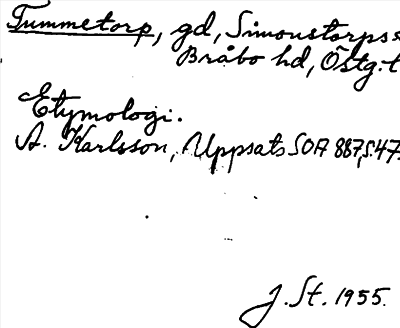 Tummetorp, gd, Simonstorps s
Bråbo hd, Östg.-l
Etymologi.
A. Karlsson, Uppsats SOA 887, s. 47.
J. St. 1955.